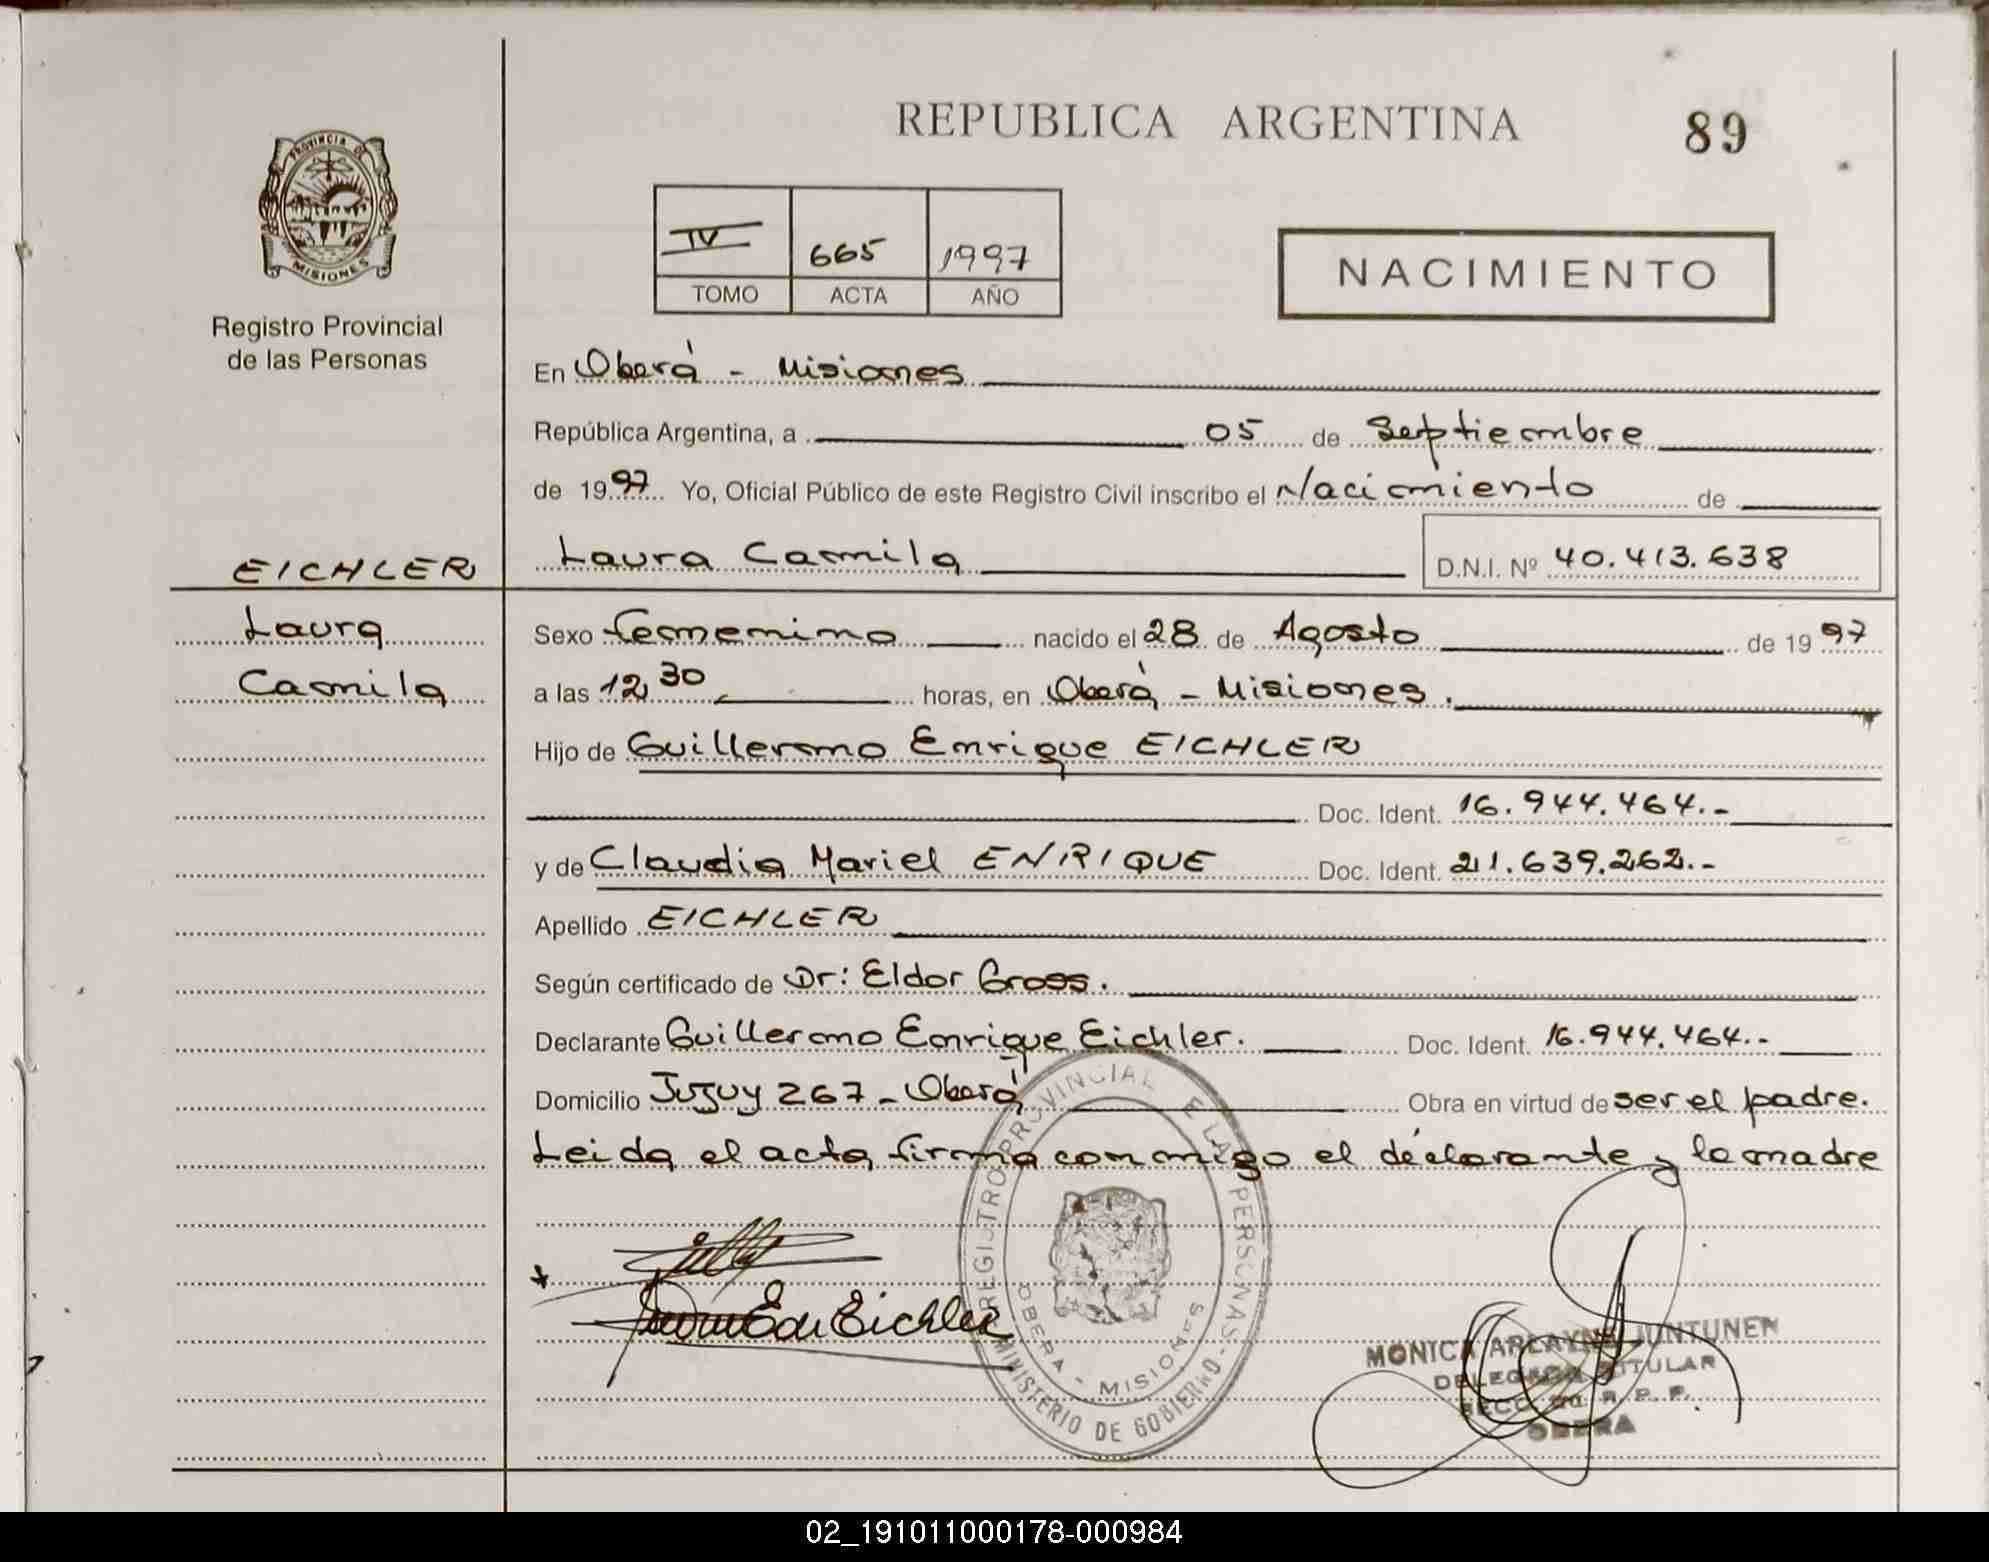 REPUBLICA ARGENTINA
89
PROVINCIA DE
MISIONES
Registro Provincial
de las Personas
IV 665 1997
TOMO ACTA AÑO
NACIMIENTO
En Oberá - Misiones
República Argentina, a 05 de Septiembre
de 1997 Yo, Oficial Público de este Registro Civil inscribo el Nacimiento de
EICHLER
Laura
Camila
Laura Camila D.N.I. Nº 40.413.638
Sexo femenino nacido el 28 de Agosto de 1997
a las 12,30 horas, en Oberá - Misiones.
Hijo de Guillermo Enrique EICHLER
Doc. Ident. 16.944.464.-
y de Claudia Mariel ENRIQUE Doc. Ident. 21.639.262.-
Apellido EICHLER
Según certificado de Dr: Eldor Gross.
Declarante Guillermo Enrique Eichler. Doc. Ident. 16.944.464.-
Domicilio Jujuy 267 - Oberá Obra en virtud de ser el padre.
Leida el acta firma conmigo el declarante y la madre
REGISTRO PROVINCIAL E LAS PERSONAS - MINISTERIO DE GOBIERNO -
OBERA - MISIONES
Eichler
MONICA ARLAYNE JUNTUNEN
DELEGADA TITULAR
SECC. R. P. P.
OBERA
02_191011000178-000984